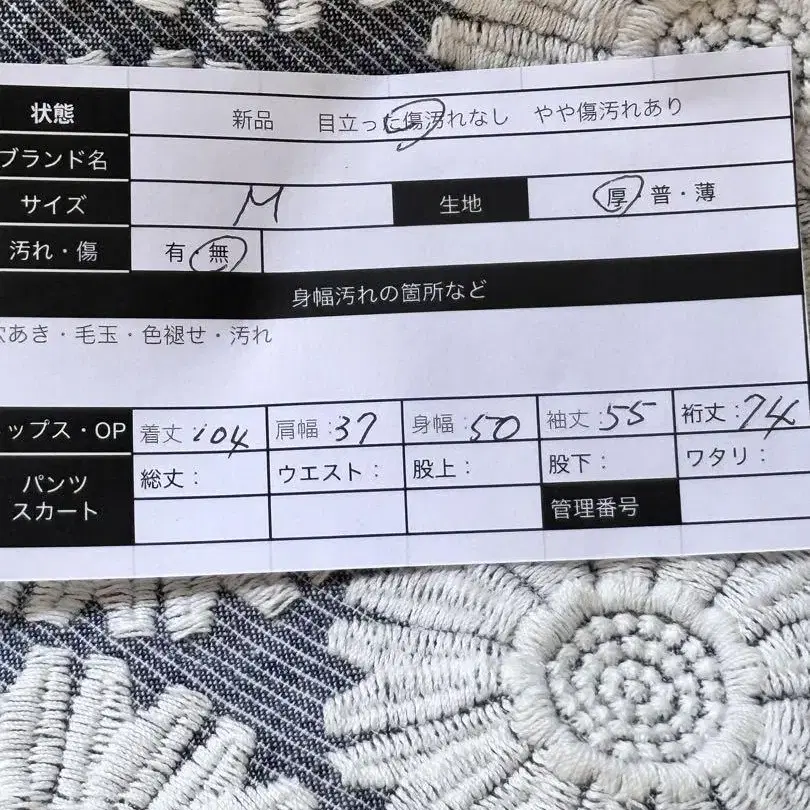 状態 新品 目立った傷汚れなし やや傷汚れあり
ブランド名
サイズ M 生地 厚・普・薄
汚れ・傷 有・無
身幅汚れの箇所など
あき・毛玉・色褪せ・汚れ
ップス・OP 着丈:104 肩幅:37 身幅:50 袖丈:55 裄丈:74
パンツ スカート 総丈: ウエスト: 股上: 股下: ワタリ:
管理番号